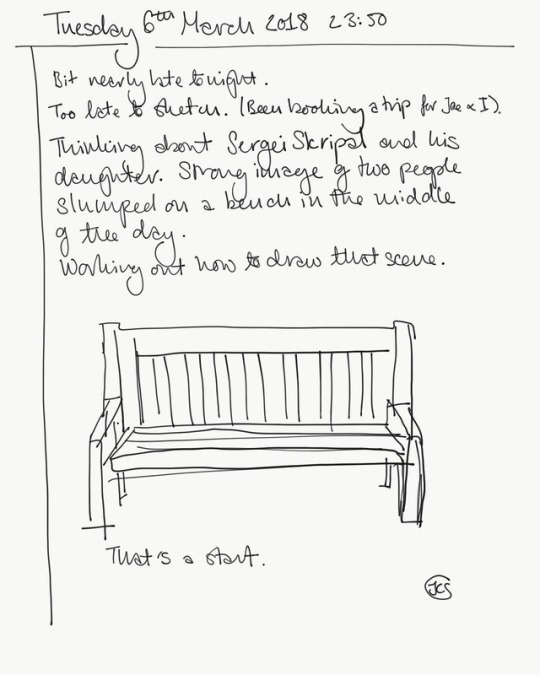 Tuesday 6th March 2018 23:50
Bit nearly late tonight.
Too late to sketch. (Been booking a trip for Jae & I).
Thinking about Sergei Skripal and his
daughter. Strong image of two people
slumped on a bench in the middle
of the day.
Working out how to draw that scene.
That's a start.
JCS